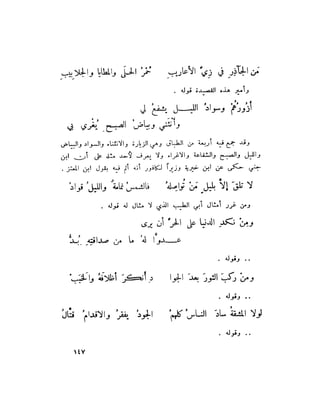 مَن الجآذِرُ في زِيِّ الأعاريبِ حُمْرَ الحـلَى والمطايا والجلابيبِ
وأمير هذه القصيدة قوله .
أزُورُهُمْ وسوادُ الليــــل يشـفعُ لي
وأنْثَني وبياضُ الصبـحِ يُغْري بي
وقد جمع فيه أربعة من الطباق وهي الزيارة والانثناء والسواد والبياض
والليل والصبح والشفاعة والاغراء ولا يعرف لأحد مثله على أن ابن
جني حكى عن ابن خيرية وزيراً لكافور أنه ألم فيه بقول ابن المعتز .
لا تلقَ إلاَّ بليلٍ مَنْ تُواصِلهُ فالشمسُ نمامةٌ والليلُ قوادُ
ومن غرر أمثال أبي الطيب الذي لا مثال له قوله .
ومِنْ نكدِ الدنيا على الحرِّ أن يرى
عــــدوًّا لهُ ما من صداقتِهِ بُــدُّ
.. وقوله .
ومنْ ركبَ الثورَ بعدَ الجوا دِ أنكرَ أظلافَهُ والغَبَبْ
.. وقوله .
لولا المشقةُ سادَ النــاسُ كلهمُ الجودُ يفقرُ والاقدامُ قتَّالُ
.. وقوله .
١٤٧